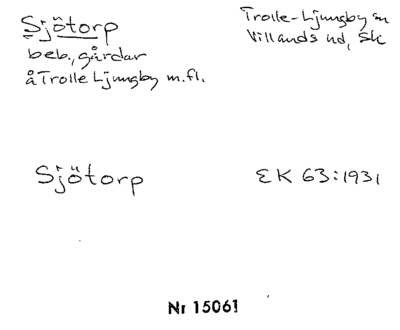 Sjötorp
Trolle-Ljungby sn
Villands hd, Sk
beb., gårdar
å Trolle Ljungby m.fl.
Sjötorp
EK 63:1931
Nr 15061